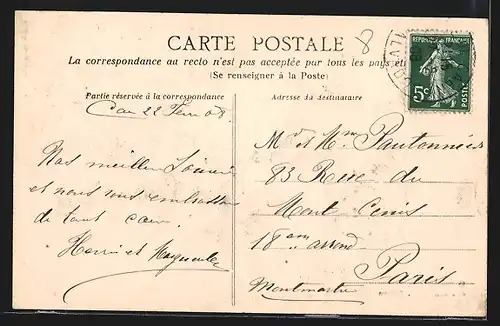 CARTE POSTALE
8
La correspondance au recto n'est pas acceptée par tous les pays
(Se renseigner à la Poste)
RÉPUBLIQUE FRANÇAISE
5c
POSTES
Partie réservée à la correspondance
Adresse du destinataire
22 08
Nos meilleurs
et nous vous embrassons
de tout cœur
Henri et
Mr et Mme
83 Rue du
Mont Cenis
18 am arrond
Paris
Montmartre